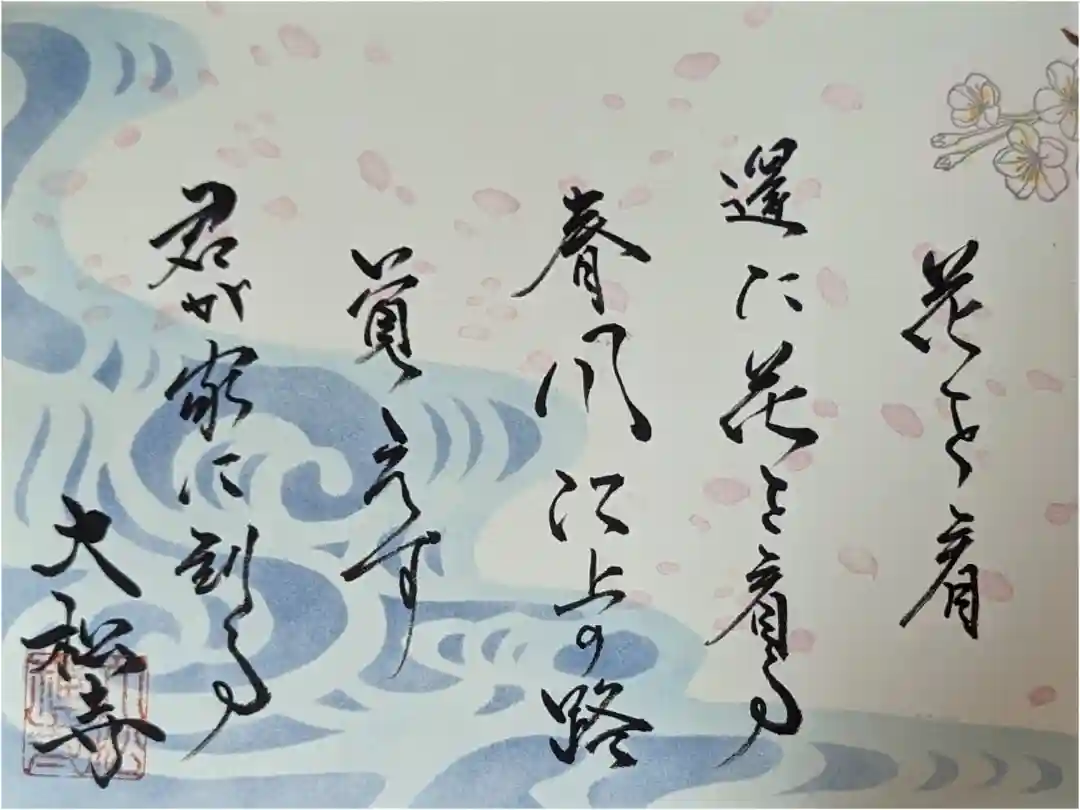 花を看
還た花を看る
春風江上の路
覚えず
君が家に到る
大松